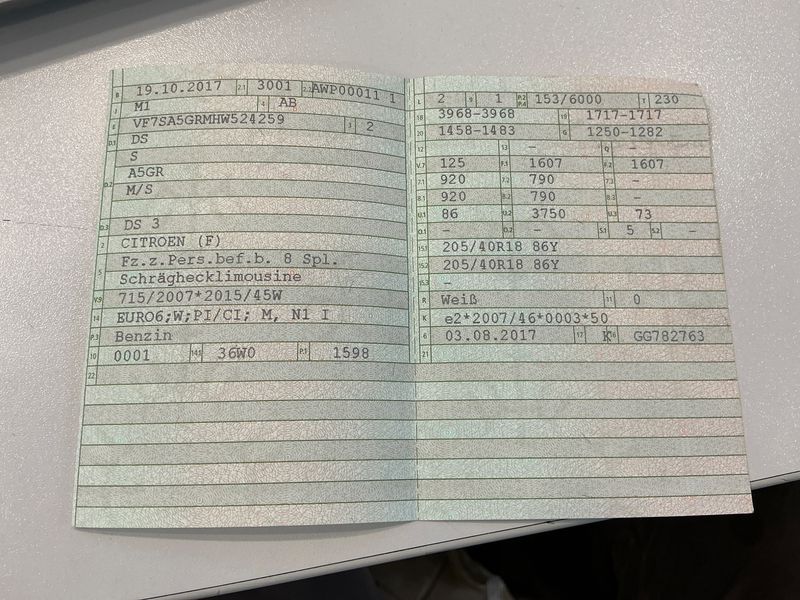 B 19.10.2017 2.1 3001 2.2 AWP00011 1
J M1 4 AB
E VF7SA5GRMHW524259 3 2
D.1 DS
D.2 S
A5GR
M/S
D.3 DS 3
2 CITROEN (F)
5 Fz.z.Pers.bef.b. 8 Spl.
Schräghecklimousine
V.9 715/2007*2015/45W
14 EURO6;W;PI/CI; M, N1 I
P.3 Benzin
10 0001 14.1 36W0 P.1 1598
22
L 2 9 1 P.2 P.4 153/6000 T 230
18 3968-3968 19 1717-1717
20 1458-1483 G 1250-1282
12 13 – Q –
V.7 125 F.1 1607 F.2 1607
7.1 920 7.2 790 7.3 –
8.1 920 8.2 790 8.3 –
U.1 86 U.2 3750 U.3 73
O.1 – O.2 – S.1 5 S.2 –
15.1 205/40R18 86Y
15.2 205/40R18 86Y
15.3 –
R Weiß 11 0
K e2*2007/46*0003*50
6 03.08.2017 17 K 16 GG782763
21